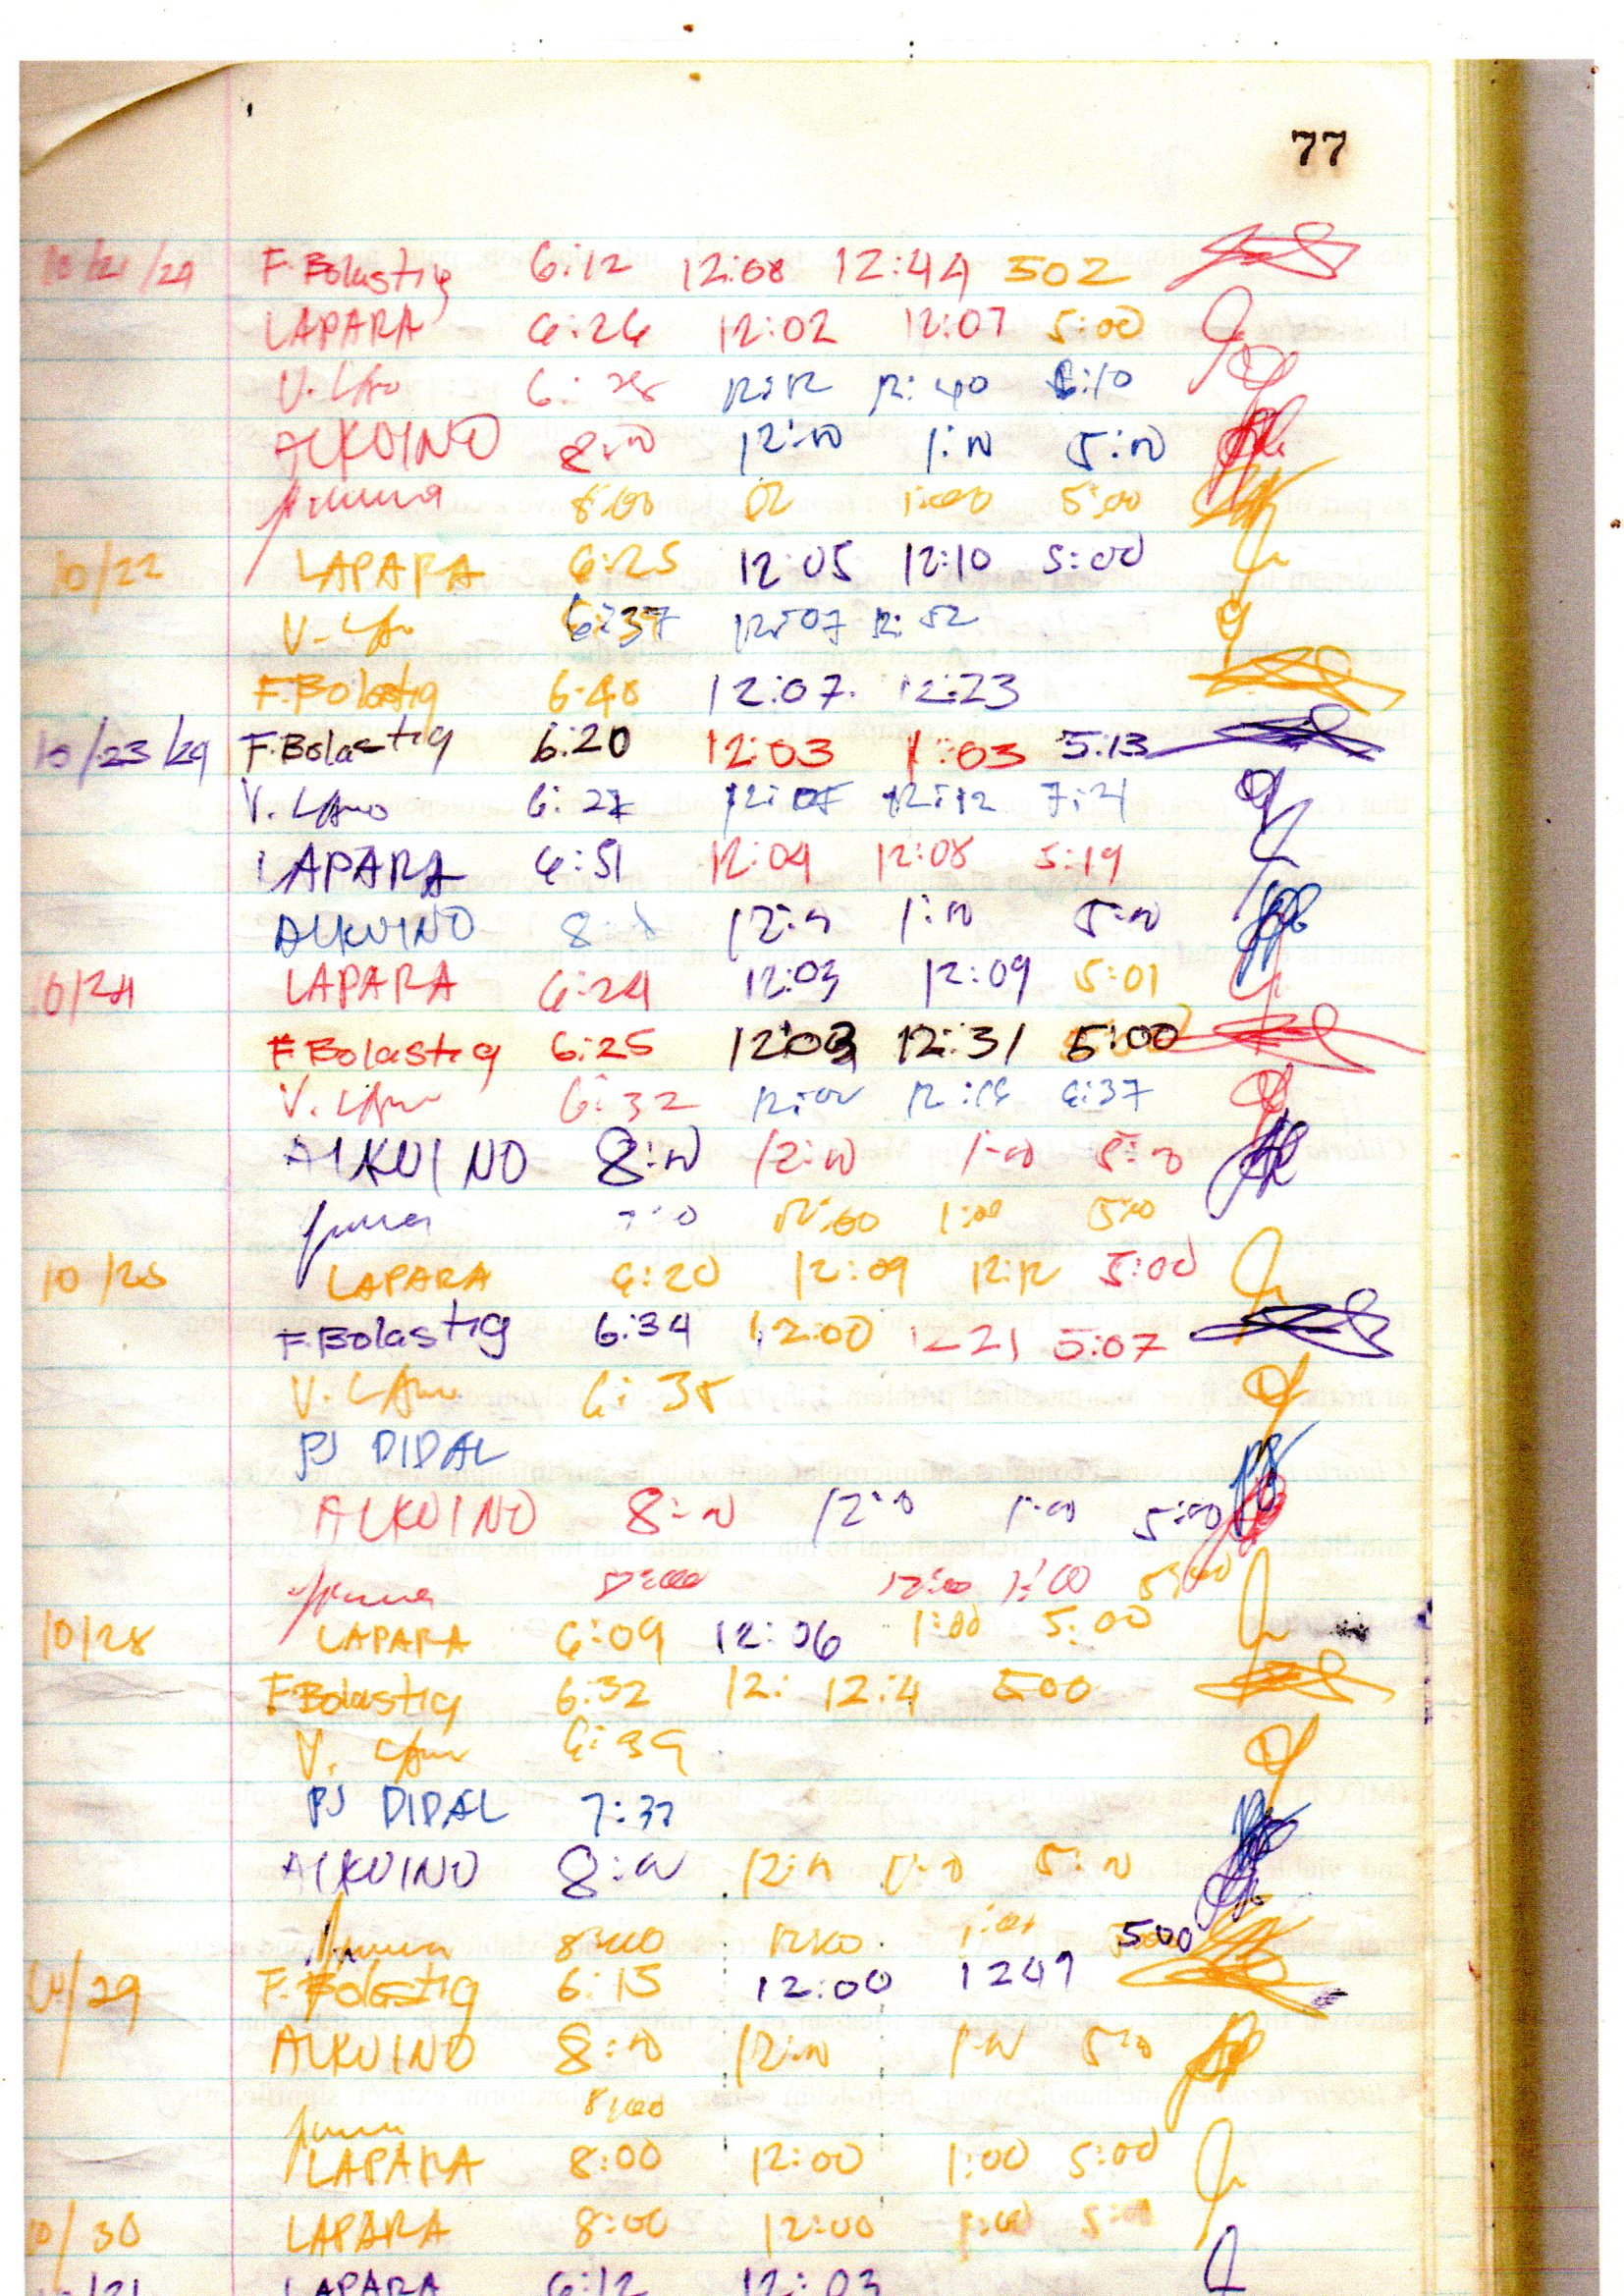 77
10/21/24 F. Bolastig 6:12 12:08 12:44 502
LAPARA 6:26 12:02 12:07 5:00
V. 6:28 12:12 12:40 6:10
ALKUINO 8:00 12:00 1:00 5:00
8:00 12 1:00 5:00
10/22 LAPARA 6:25 12:05 12:10 5:00
V. 6:37 12:07 12:52
F. Bolastig 6:48 12:07 12:23
10/23/24 F. Bolastig 6:20 12:03 1:03 5:13
V. 6:27 12:12
LAPARA 6:51 12:04 12:08 5:19
ALKUINO 8: 12:00 1:00 5:00
10/24 LAPARA 6:24 12:03 12:09 5:01
F. Bolastig 6:25 12:03 12:31 5:00
V. 6:32 6:37
ALKUINO 8:00 12:00 1:00 5:00
12:00 1:00 5:00
10/25 LAPARA 6:20 12:09 12:12 5:00
F. Bolastig 6:34 12:00 1221 5:07
V. 6:38
PJ DIDAL
ALKUINO 8:00 12:00 1:00 5:00
12:00 1:00 5:00
10/28 LAPARA 6:09 12:06 1:00 5:00
F. Bolastig 6:32 12: 12:4 500
V. 6:39
PJ DIDAL 7:37
ALKUINO 8:00 12:00 1:00 5:00
8:00 12:00 1:00 500
10/29 F. Bolastig 6:15 12:00 1247
ALKUINO 8:00 12:00 1:00 5:00
8:00
LAPARA 8:00 12:00 1:00 5:00
10/30 LAPARA 8:00 12:00 1:00 5:01
LAPARA 6:12 12:03